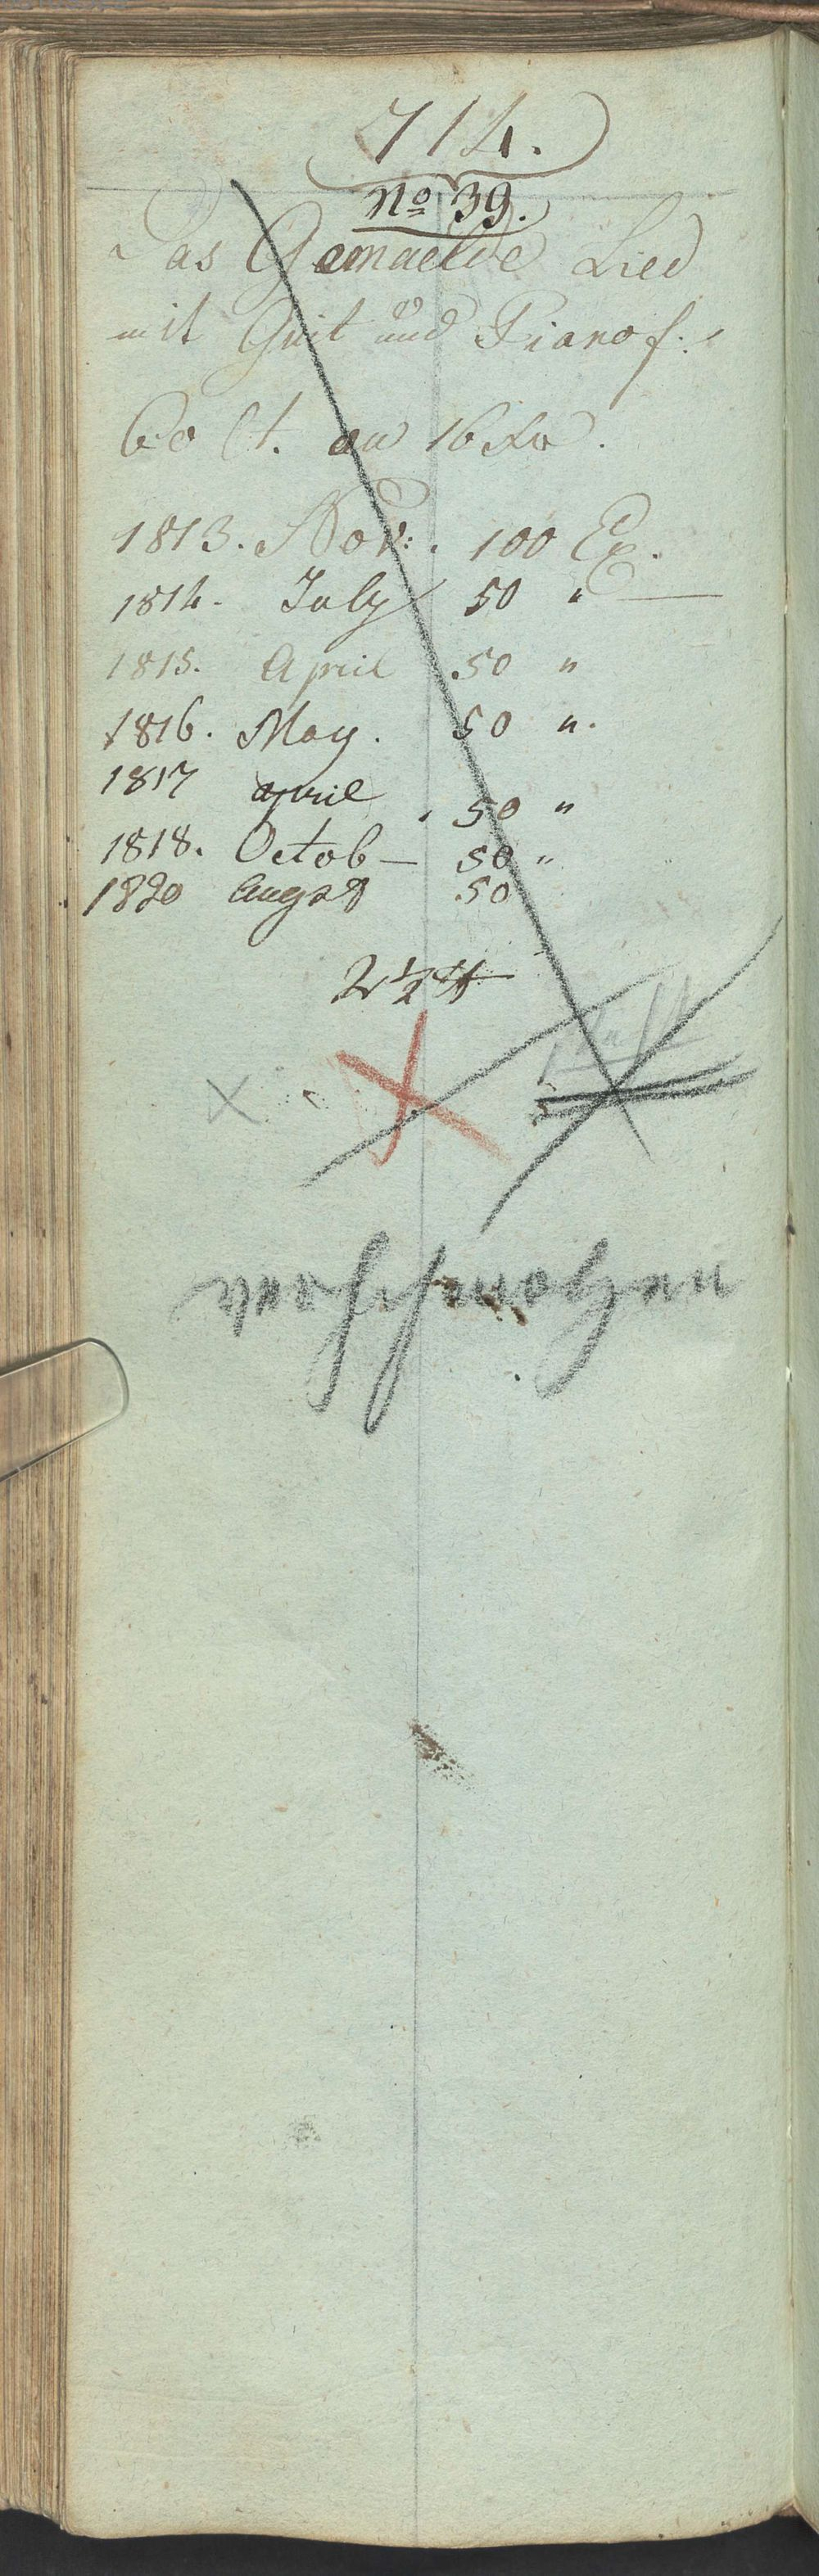 714.
No 39.
Das Gemaelde Lied
mit Guit und Pianof:
16 Xr.
1813. Nov: . 100 Ex.
1814. July 50 "
1815. April 50 "
1816. May. 50 ".
1817 april . 50 "
1818. Octob— 50 "
1820 August 50
2 1/2